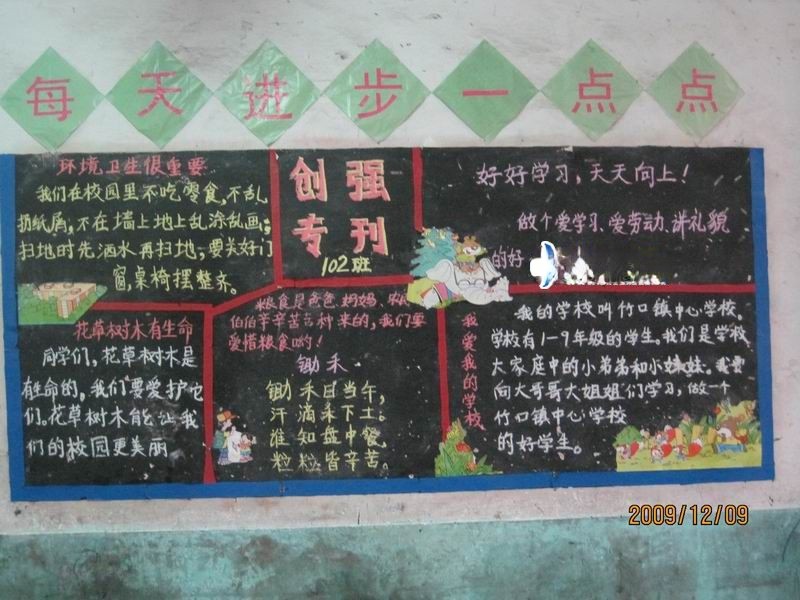 每天进步一点点
环境卫生很重要
我们在校园里不吃零食,不乱
扔纸屑,不在墙上地上乱涂乱画;
扫地时先洒水再扫地,要关好门
窗,桌椅摆整齐。
创强
专刊
102班
好好学习,天天向上!
做个爱学习、爱劳动、讲礼貌
的好
花草树木有生命
同学们,花草树木是
有生命的,我们要爱护它
们。花草树木能让我
们的校园更美丽
粮食是爸爸、妈妈、农民
伯伯辛辛苦苦种来的,我们要
爱惜粮食哟!
锄禾
锄禾日当午,
汗滴禾下土;
谁知盘中餐,
粒粒皆辛苦。
我爱我的学校
我的学校叫竹口镇中心学校。
学校有1-9年级的学生。我们是学校
大家庭中的小弟弟和小妹妹。我要
向大哥哥大姐姐们学习,做一个
竹口镇中心学校
的好学生。
2009/12/09